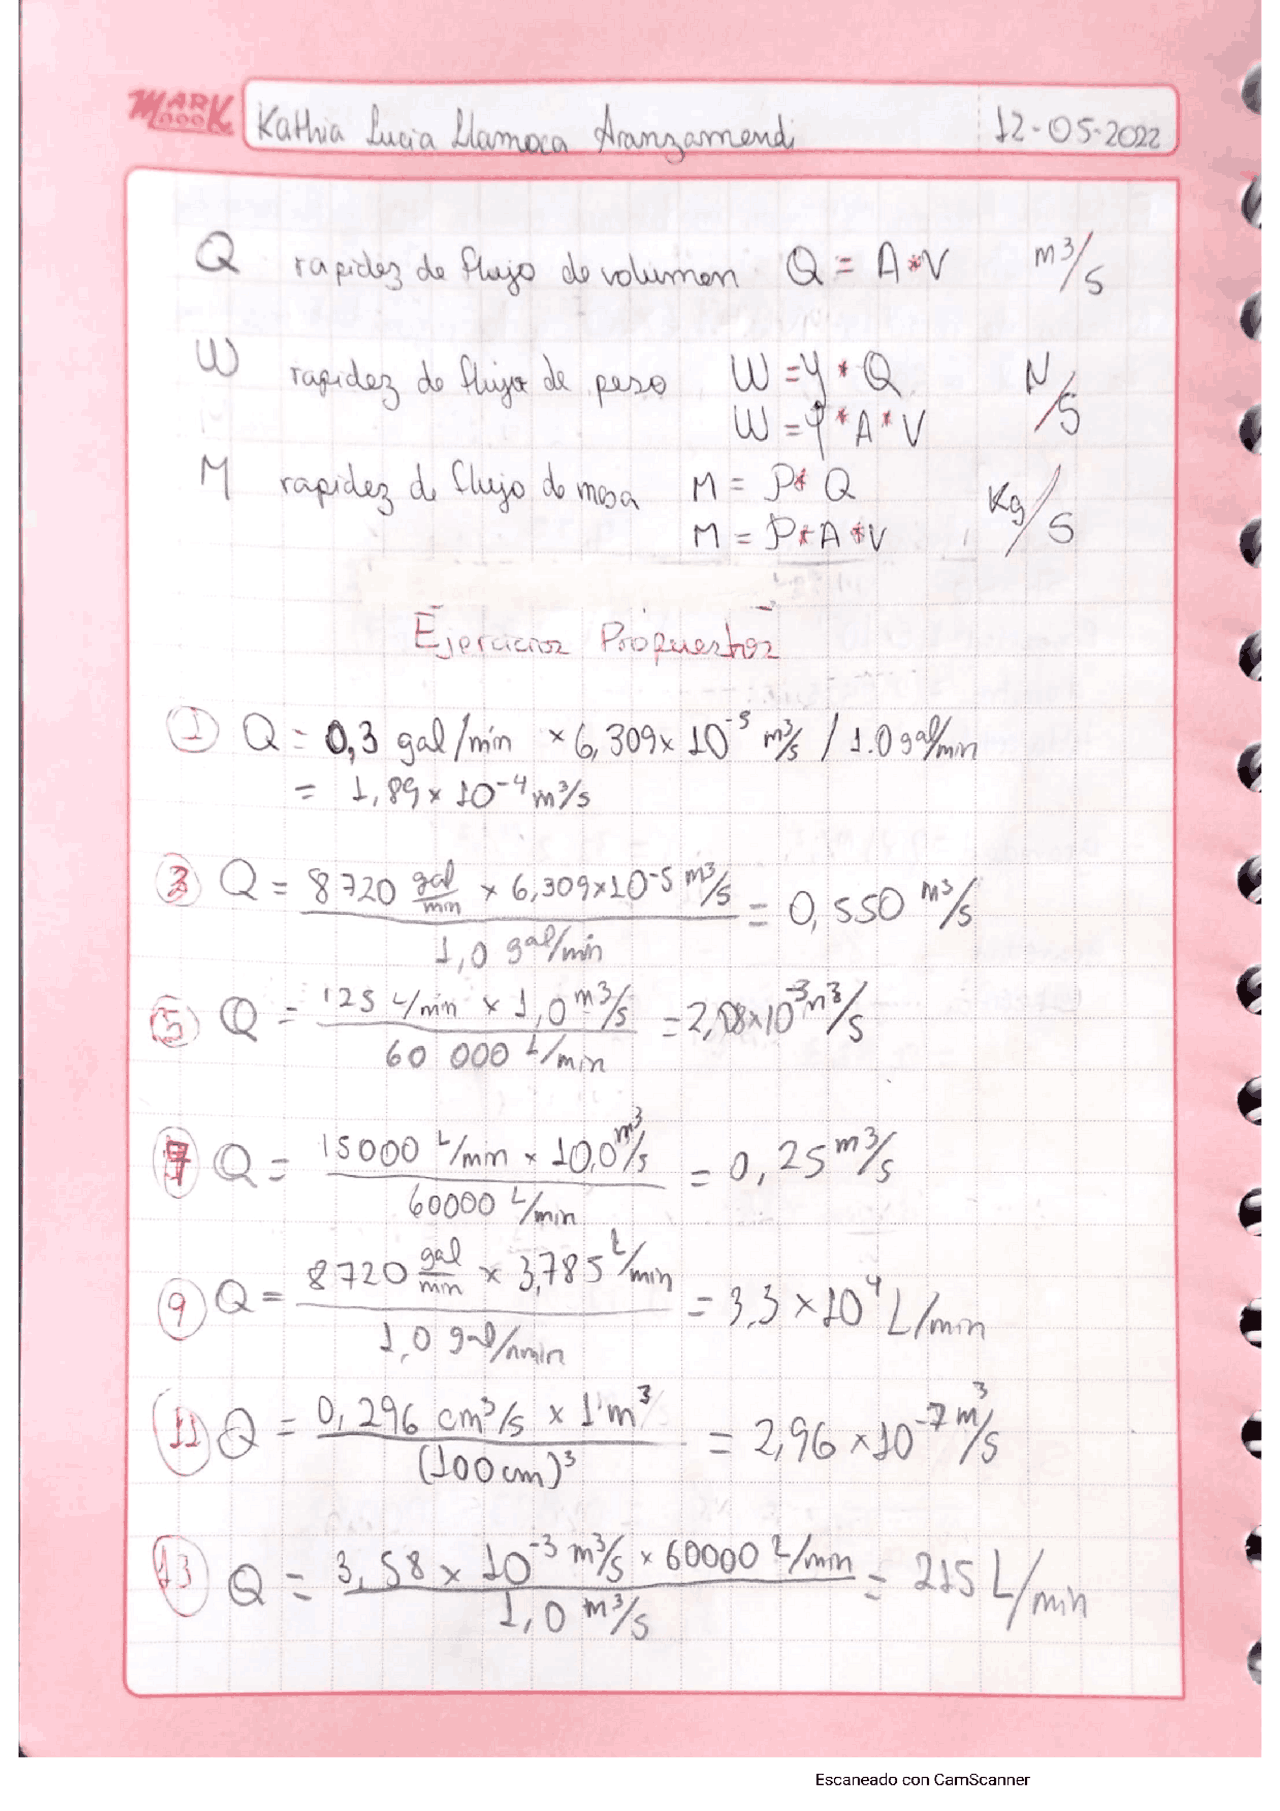 MARK BOOK Kathia Lucia Llamoca Aranzamendi 12-05-2022
Q rapidez de flujo de volumen Q = A*V m³/s
W rapidez de flujo de peso W = γ * Q N/s
W = γ * A * V
M rapidez de flujo de masa M = ρ* Q Kg/s
M = ρ* A *V
Ejercicios Propuestos
① Q = 0,3 gal/min × 6,309 × 10⁻⁵ m³/s / 1.0 gal/min
= 1,89 × 10⁻⁴ m³/s
③ Q = 8720 gal/min × 6,309×10⁻⁵ m³/s = 0,550 m³/s
1,0 gal/min
⑤ Q = 125 L/min × 1,0 m³/s = 2,08×10⁻³ m³/s
60 000 L/min
⑦ Q = 15000 L/min × 10,0 m³/s = 0,25 m³/s
60000 L/min
⑨ Q = 8720 gal/min × 3,785 L/min = 3,3 × 10⁴ L/min
1,0 gal/min
⑪ Q = 0,296 cm³/s × 1 m³ = 2,96 × 10⁻⁷ m³/s
(100 cm)³
⑬ Q = 3,58 × 10⁻³ m³/s × 60000 L/min = 215 L/min
1,0 m³/s
Escaneado con CamScanner